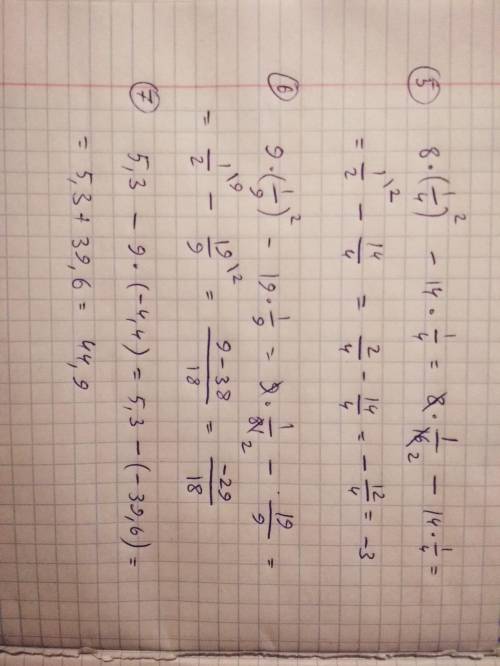 ⑤ 8 · (1/4)² − 14 · 1/4 = 8 · 1/16 2 − 14 · 1/4 =
= 1/2 \2 − 14/4 = 2/4 − 14/4 = − 12/4 = −3
⑥ 9 · (1/9)² − 19 · 1/9 = 9 · 1/81 2 − 19/9 =
= 1/2 \9 − 19/9 \2 = 9 − 38/18 = −29/18
⑦ 5,3 − 9 · (−4,4) = 5,3 − (−39,6) =
= 5,3 + 39,6 = 44,9